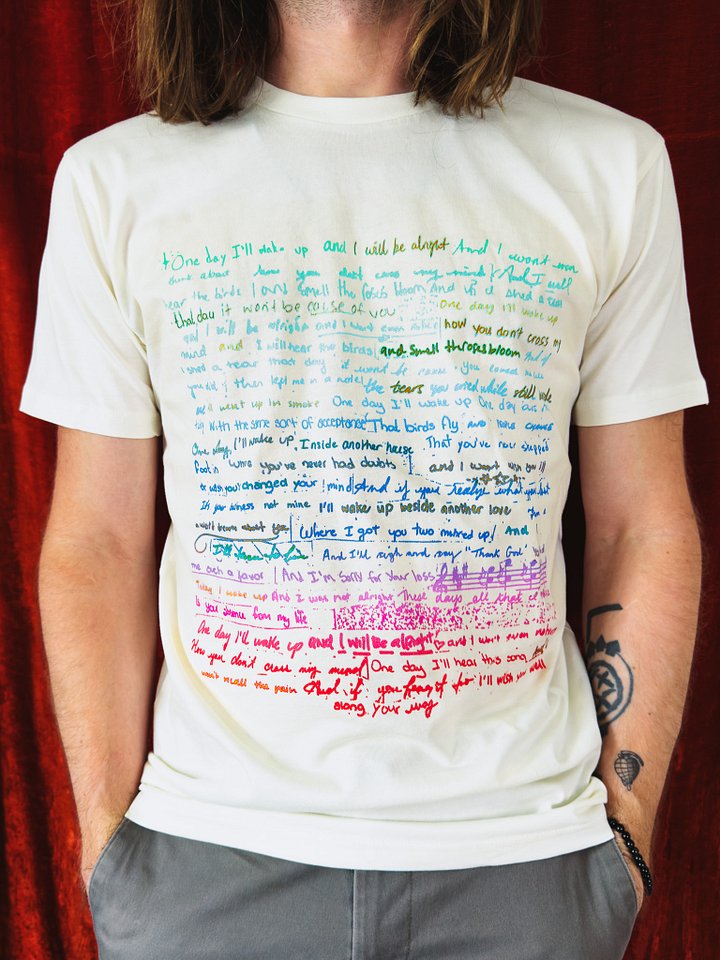 One day I'll wake up and I will be alright And I won't even
think about how you dont cross my mind And I will
hear the birds I and smell the roses bloom And if I shed a tear
that day it won't be cause of you One day I'll wake up
and I will be alright and I won't even notice how you don't cross my
mind and I will hear the birds and smell the roses bloom And if
I shed a tear that day it won't be cause you
you did then left me in a note the tears you cried while still
went up in smoke One day I'll wake up One day
With the same sort of acceptance That birds fly and
One day, I'll wake up, Inside another house That you've
You've never had doubts and I won't wish you'll
or wish you changed your mind And if you really
It's your not mine I'll wake up beside another love
about you Where I got you two mixed up And I
And I'll sigh and say "Thank God"
me such a favor And I'm sorry for your loss
Today I wake up And I was not alright These days all that I
is you from my life
One day I'll wake up and I will be alright and I won't even
How you don't cross my mind One day I'll hear this song
won't recall the pain And if you I'll wish you well
along your way